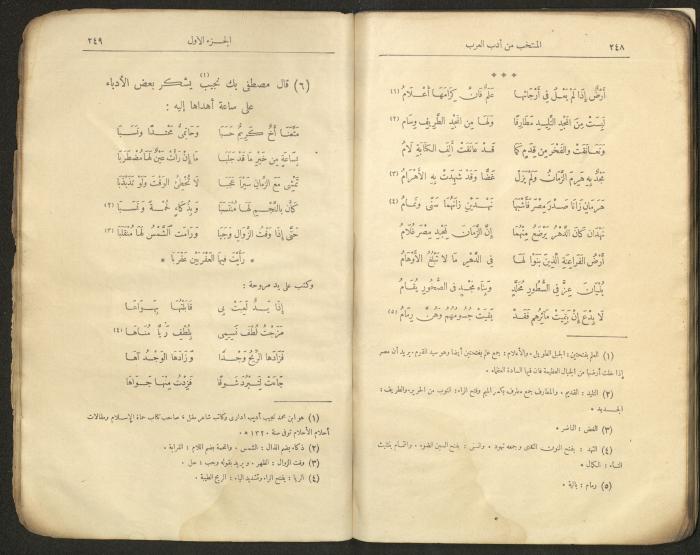 ٢٤٨
المنتخب من أدب العرب
* * *
أَرْضٌ إِذَا لَمْ يَعْلُ فِي أَرْجَائِهَا عَلَمٌ فَإِنَّ كِرَامَهَا أَعْلَامُ (١)
لَبِسَتْ مِنَ المَجْدِ التَّلِيدِ مَطَارِفًا وَلَهَا مِنَ المَجْدِ الطَّرِيفِ وِسَامُ (٢)
وَتَعَانَقَتْ وَالفَخْرَ مِنْ قِدَمٍ كَمَا قَدْ عَانَقَتْ أَلِفَ الكِتَابَةِ لَامُ
مَجْدٌ بِهِ هَرِمَ الزَّمَانُ وَلَمْ يَزَلْ غَضًّا وَقَدْ شَهِدَتْ بِهِ الأَهْرَامُ (٣)
هَرَمَانِ زَانَا صَدْرَ مِصْرَ فَأَشْبَهَا نَهْدَيْنِ زَانَهُمَا سَنًى وَتَمَامُ (٤)
نَهْدَانِ كَانَ الدَّهْرُ يَرْضَعُ مِنْهُمَا إِنَّ الزَّمَانَ لِمَجْدِ مِصْرَ غُلَامُ
أَرْضُ الفَرَاعِنَةِ الَّذِينَ بَنَوْا لَهَا فِي الدَّهْرِ مَا لَا تَبْلُغُ الأَوْهَامُ
بُنْيَانَ عِزٍّ فِي السُّطُورِ مُخَلَّدٍ وَبِنَاءَ مَجْدٍ فِي الصُّخُورِ يُقَامُ
لَا بِدْعَ إِنْ بَقِيَتْ مَآثِرُهُمْ فَقَدْ بَقِيَتْ جُسُومُهُمُ وَهُنَّ رِمَامُ (٥)
(١) العلم بفتحتين : الجبل الطويل ، والأعلام : جمع علم بفتحتين أيضا وهو سيد القوم ، يريد أن مصر
إذا خلت أرضها من الجبال العظيمة فان فيها السادة العظماء .
(٢) التليد : القديم ، والمطارف جمع مطرف بكسر الميم وفتح الراء : الثوب من الحرير، والطريف :
الجديد .
(٣) الغض : الناضر .
(٤) النهد : بفتح النون الثدي وجمعه نهود ، والسنى : بفتح السين الضوء ، والتمام بتثليث
التاء : الكمال .
(٥) رمام : بالية .
الجزء الأول
٢٤٩
(٦) قال مصطفى بك نجيب (١) يشكر بعض الأدباء
على ساعة أهداها إليه :
مَتَّعَنَا أَخٌ كَرِيمٌ حَسَبَا وَحَاتِمِيٌّ مَحْتِدًا وَنَسَبَا
بِسَاعَةٍ مِنْ خَيْرِ مَا قَدْ جَلَبَا مَا إِنْ رَأَتْ عَيْنٌ لَهَا مُضْطَرَبَا
تَمْشِي مَعَ الزَّمَانِ سَيْرًا عَجَبَا لَا تُخْطِئُ الوَقْتَ وَلَوْ تَذَبْذَبَا
كَأَنَّ بِالنَّجْمِ لَهَا مُنْتَسَبَا وَبِذُكَاءٍ لُحْمَةً وَنَسَبَا (٢)
حَتَّى إِذَا وَقْتُ الزَّوَالِ وَجَبَا وَرَامَتِ الشَّمْسُ لَهَا مُنْقَلَبَا (٣)
* رَأَيْتَ فِيهَا العَقْرَبَيْنِ عَقْرَبَا *
وكتب على يد مروحة :
إِذَا يَدٌ لَعِبَتْ بِي قَابَلْتُهَا بِهَوَاهَا
مَزَجْتُ لُطْفَ نَسِيمِي بِلُطْفِ رَيَّا مُنَاهَا (٤)
فَزَادَهَا الرِّيحُ وَجْدًا وَزَادَهَا الوَجْدُ آهَا
جَاءَتْ لِتَبْرُدَ شَوْقًا فَزِدْتُ مِنْهَا جَوَاهَا
(١) هو ابن محمد نجيب أديب إداري وكاتب شاعر مقل ، صاحب كتاب حماة الإسلام ومقالات
أحلام الأحلام توفى سنة ١٣٢٠ هـ .
(٢) ذكاء بضم الذال : الشمس . واللحمة بضم اللام : القرابة .
(٣) وقت الزوال : الظهر . ويريد بقوله وجب : حل .
(٤) الريا : بفتح الراء وتشديد الياء : الريح الطيبة .